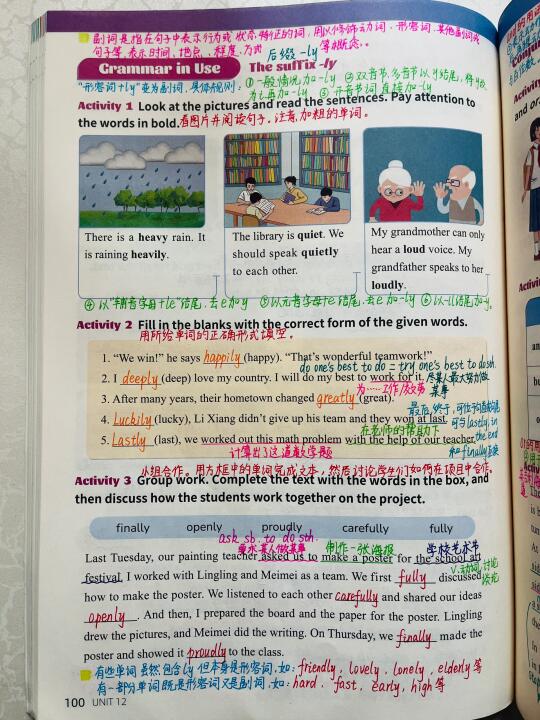 副词是指在句子中表示行为或状态特征的词,用以修饰动词、形容词、其他副词或
句子等,表示时间、地点、程度、方式等概念。
后缀 -ly
Grammar in Use The suffix -ly
"形容词+ly"变为副词,具体规则: ①一般情况加-ly ②双音节,多音节以y结尾,将y改
为i,再加-ly ③单音节词直接加-ly
Activity 1 Look at the pictures and read the sentences. Pay attention to
the words in bold. 看图片并阅读句子。注意加粗的单词。
There is a heavy rain. It
is raining heavily.
The library is quiet. We
should speak quietly
to each other.
My grandmother can only
hear a loud voice. My
grandfather speaks to her
loudly.
④以"辅音字母+le"结尾,去e加y ⑤以元音字母+e结尾,去e加-ly ⑥以-ll结尾加-y。
Activity 2 Fill in the blanks with the correct form of the given words.
用所给单词的正确形式填空。
1. "We win!" he says happily (happy). "That's wonderful teamwork!"
do one's best to do = try one's best to do sth.
2. I deeply (deep) love my country. I will do my best to work for it. 尽某人最大努力做
某事
为……工作/效劳
3. After many years, their hometown changed greatly (great).
最后,终于,可位于句首或句尾
4. Luckily (lucky), Li Xiang didn't give up his team and they won at last.
可与lastly, in
在老师的帮助下
5. Lastly (last), we worked out this math problem with the help of our teacher.
the end
和finally互换
计算出了这道数学题
小组合作。用方框中的单词完成文本,然后讨论学生们如何在项目中合作。
Activity 3 Group work. Complete the text with the words in the box, and
then discuss how the students work together on the project.
finally openly proudly carefully fully
ask sb. to do sth.
要求某人做某事 制作一张海报 学校艺术节
Last Tuesday, our painting teacher asked us to make a poster for the school art
festival. I worked with Lingling and Meimei as a team. We first fully discussed
v.动词,讨论
how to make the poster. We listened to each other carefully and shared our ideas
openly. And then, I prepared the board and the paper for the poster. Lingling
drew the pictures, and Meimei did the writing. On Thursday, we finally made the
poster and showed it proudly to the class.
有些单词虽然包含ly但本身是形容词,如: friendly, lovely, lonely, elderly等
有一部分单词既是形容词又是副词,如: hard, fast, early, high等
100 UNIT 12